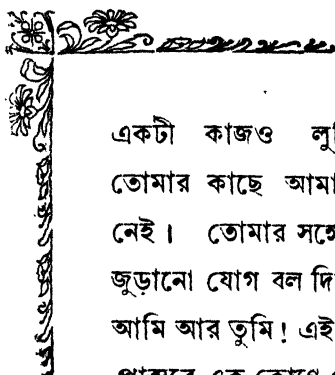 একটী কাজও
তোমার কাছে
নেই। তোমার সঙ্গে
জুড়ানো যোগ বল
আমি আর তুমি! এই